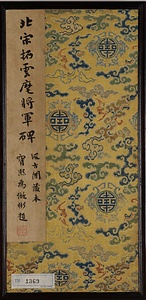 北宋拓雲麾將軍碑
汲古閣藏本
寶熙為俶彬題
1369